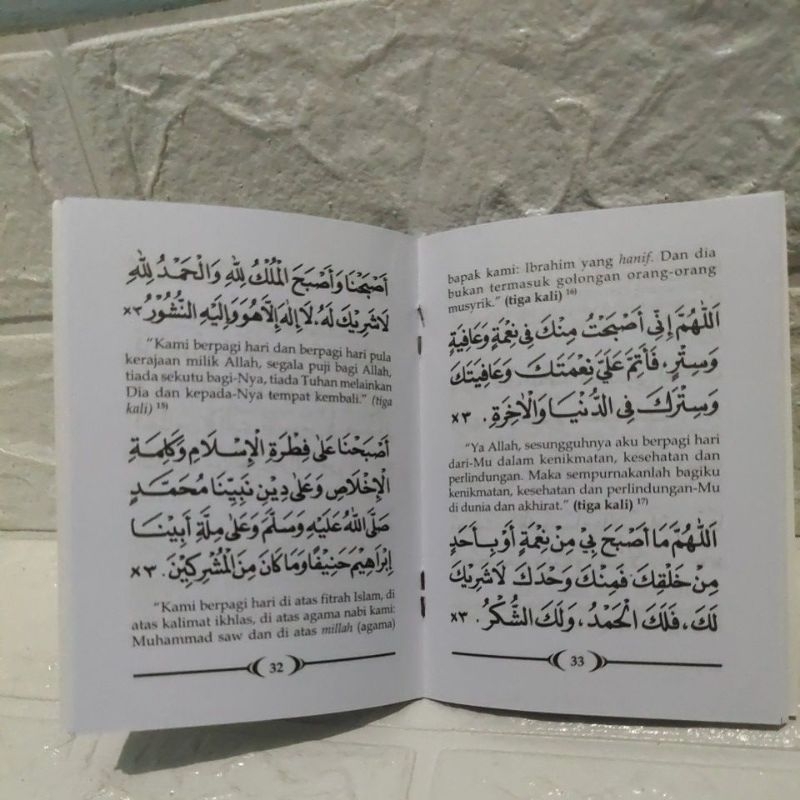 اَصْبَحْنَا وَأَصْبَحَ الْمُلْكُ لِلّٰهِ وَالْحَمْدُ لِلّٰهِ
لَاشَرِيْكَ لَهُ، لَا إِلٰهَ إِلَّاهُوَ وَإِلَيْهِ النُّشُوْرُ ×٣
"Kami berpagi hari dan berpagi hari pula
kerajaan milik Allah, segala puji bagi Allah,
tiada sekutu bagi-Nya, tiada Tuhan melainkan
Dia dan kepada-Nya tempat kembali." (tiga
kali) 15)
اَصْبَحْنَا عَلَى فِطْرَةِ الْإِسْلَامِ وَكَلِمَةِ
الْإِخْلَاصِ وَعَلَى دِيْنِ نَبِيِّنَا مُحَمَّدٍ
صَلَّى اللهُ عَلَيْهِ وَسَلَّمَ وَعَلَى مِلَّةِ أَبِيْنَا
إِبْرَاهِيْمَ حَنِيْفًا وَمَا كَانَ مِنَ الْمُشْرِكِيْنَ. ×٣
"Kami berpagi hari di atas fitrah Islam, di
atas kalimat ikhlas, di atas agama nabi kami:
Muhammad saw dan di atas millah (agama)
32
bapak kami: Ibrahim yang hanif. Dan dia
bukan termasuk golongan orang-orang
musyrik." (tiga kali) 16)
اَللّٰهُمَّ إِنِّي أَصْبَحْتُ مِنْكَ فِي نِعْمَةٍ وَعَافِيَةٍ
وَسِتْرٍ، فَأَتِمَّ عَلَيَّ نِعْمَتَكَ وَعَافِيَتَكَ
وَسِتْرَكَ فِي الدُّنْيَا وَالْاٰخِرَةِ. ×٣
"Ya Allah, sesungguhnya aku berpagi hari
dari-Mu dalam kenikmatan, kesehatan dan
perlindungan. Maka sempurnakanlah bagiku
kenikmatan, kesehatan dan perlindungan-Mu
di dunia dan akhirat." (tiga kali) 17)
اَللّٰهُمَّ مَا أَصْبَحَ بِيْ مِنْ نِعْمَةٍ أَوْ بِأَحَدٍ
مِنْ خَلْقِكَ فَمِنْكَ وَحْدَكَ لَاشَرِيْكَ
لَكَ، فَلَكَ الْحَمْدُ، وَلَكَ الشُّكْرُ. ×٣
33